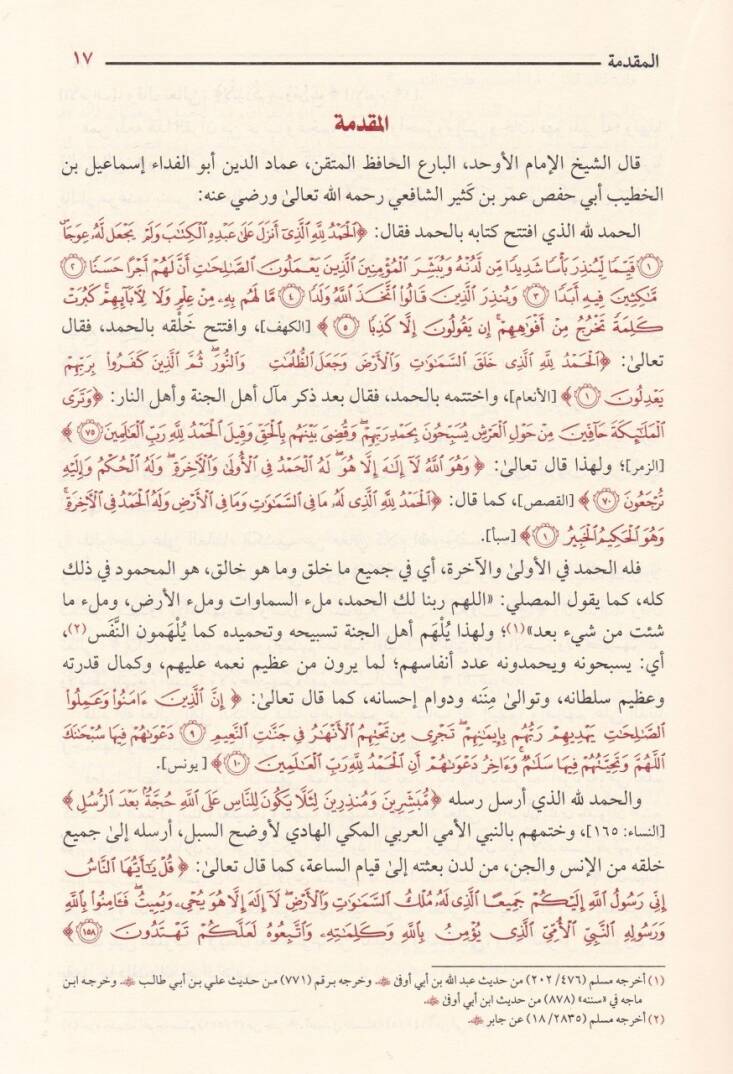 المقدمة ١٧
المقدمة
قال الشيخ الإمام الأوحد، البارع الحافظ المتقن، عماد الدين أبو الفداء إسماعيل بن
الخطيب أبي حفص عمر بن كثير الشافعي رحمه الله تعالىٰ ورضي عنه:
الحمد لله الذي افتتح كتابه بالحمد فقال: ﴿ٱلْحَمْدُ لِلَّهِ ٱلَّذِىٓ أَنزَلَ عَلَىٰ عَبْدِهِ ٱلْكِتَٰبَ وَلَمْ يَجْعَل لَّهُۥ عِوَجَاۜ
﴿١﴾ قَيِّمًا لِّيُنذِرَ بَأْسًا شَدِيدًا مِّن لَّدُنْهُ وَيُبَشِّرَ ٱلْمُؤْمِنِينَ ٱلَّذِينَ يَعْمَلُونَ ٱلصَّٰلِحَٰتِ أَنَّ لَهُمْ أَجْرًا حَسَنًا ﴿٢﴾
مَّٰكِثِينَ فِيهِ أَبَدًا ﴿٣﴾ وَيُنذِرَ ٱلَّذِينَ قَالُوا۟ ٱتَّخَذَ ٱللَّهُ وَلَدًا ﴿٤﴾ مَّا لَهُم بِهِۦ مِنْ عِلْمٍ وَلَا لِءَابَآئِهِمْ ۚ كَبُرَتْ
كَلِمَةً تَخْرُجُ مِنْ أَفْوَٰهِهِمْ ۚ إِن يَقُولُونَ إِلَّا كَذِبًا ﴿٥﴾﴾ [الكهف]، وافتتح خلْقه بالحمد، فقال
تعالىٰ: ﴿ٱلْحَمْدُ لِلَّهِ ٱلَّذِى خَلَقَ ٱلسَّمَٰوَٰتِ وَٱلْأَرْضَ وَجَعَلَ ٱلظُّلُمَٰتِ وَٱلنُّورَ ۖ ثُمَّ ٱلَّذِينَ كَفَرُوا۟ بِرَبِّهِمْ
يَعْدِلُونَ ﴿١﴾﴾ [الأنعام]، واختتمه بالحمد، فقال بعد ذكر مآل أهل الجنة وأهل النار: ﴿وَتَرَى
ٱلْمَلَٰٓئِكَةَ حَآفِّينَ مِنْ حَوْلِ ٱلْعَرْشِ يُسَبِّحُونَ بِحَمْدِ رَبِّهِمْ ۖ وَقُضِىَ بَيْنَهُم بِٱلْحَقِّ وَقِيلَ ٱلْحَمْدُ لِلَّهِ رَبِّ ٱلْعَٰلَمِينَ ﴿٧٥﴾﴾
[الزمر]؛ ولهذا قال تعالىٰ: ﴿وَهُوَ ٱللَّهُ لَآ إِلَٰهَ إِلَّا هُوَ ۖ لَهُ ٱلْحَمْدُ فِى ٱلْأُولَىٰ وَٱلْءَاخِرَةِ ۖ وَلَهُ ٱلْحُكْمُ وَإِلَيْهِ
تُرْجَعُونَ ﴿٧٠﴾﴾ [القصص]، كما قال: ﴿ٱلْحَمْدُ لِلَّهِ ٱلَّذِى لَهُۥ مَا فِى ٱلسَّمَٰوَٰتِ وَمَا فِى ٱلْأَرْضِ وَلَهُ ٱلْحَمْدُ فِى ٱلْءَاخِرَةِ ۚ
وَهُوَ ٱلْحَكِيمُ ٱلْخَبِيرُ ﴿١﴾﴾ [سبأ].
فله الحمد في الأولىٰ والآخرة، أي في جميع ما خلق وما هو خالق، هو المحمود في ذلك
كله، كما يقول المصلي: «اللهم ربنا لك الحمد، ملء السماوات وملء الأرض، وملء ما
شئت من شيء بعد»(١)؛ ولهذا يُلْهَم أهل الجنة تسبيحه وتحميده كما يُلْهَمون النَّفَس(٢)،
أي: يسبحونه ويحمدونه عدد أنفاسهم؛ لما يرون من عظيم نعمه عليهم، وكمال قدرته
وعظيم سلطانه، وتوالىٰ مِنَنه ودوام إحسانه، كما قال تعالىٰ: ﴿إِنَّ ٱلَّذِينَ ءَامَنُوا۟ وَعَمِلُوا۟
ٱلصَّٰلِحَٰتِ يَهْدِيهِمْ رَبُّهُم بِإِيمَٰنِهِمْ ۖ تَجْرِى مِن تَحْتِهِمُ ٱلْأَنْهَٰرُ فِى جَنَّٰتِ ٱلنَّعِيمِ ﴿٩﴾ دَعْوَىٰهُمْ فِيهَا سُبْحَٰنَكَ
ٱللَّهُمَّ وَتَحِيَّتُهُمْ فِيهَا سَلَٰمٌ ۚ وَءَاخِرُ دَعْوَىٰهُمْ أَنِ ٱلْحَمْدُ لِلَّهِ رَبِّ ٱلْعَٰلَمِينَ ﴿١٠﴾﴾ [يونس].
والحمد لله الذي أرسل رسله ﴿مُّبَشِّرِينَ وَمُنذِرِينَ لِئَلَّا يَكُونَ لِلنَّاسِ عَلَى ٱللَّهِ حُجَّةٌۢ بَعْدَ ٱلرُّسُلِ﴾
[النساء: ١٦٥]، وختمهم بالنبي الأمي العربي المكي الهادي لأوضح السبل، أرسله إلىٰ جميع
خلقه من الإنس والجن، من لدن بعثته إلىٰ قيام الساعة، كما قال تعالىٰ: ﴿قُلْ يَٰٓأَيُّهَا ٱلنَّاسُ
إِنِّى رَسُولُ ٱللَّهِ إِلَيْكُمْ جَمِيعًا ٱلَّذِى لَهُۥ مُلْكُ ٱلسَّمَٰوَٰتِ وَٱلْأَرْضِ ۖ لَآ إِلَٰهَ إِلَّا هُوَ يُحْىِۦ وَيُمِيتُ ۖ فَـَٔامِنُوا۟ بِٱللَّهِ
وَرَسُولِهِ ٱلنَّبِىِّ ٱلْأُمِّىِّ ٱلَّذِى يُؤْمِنُ بِٱللَّهِ وَكَلِمَٰتِهِۦ وَٱتَّبِعُوهُ لَعَلَّكُمْ تَهْتَدُونَ ﴿١٥٨﴾﴾
(١) أخرجه مسلم (٢٠٢/٤٧٦) من حديث عبد الله بن أبي أوفىٰ ﷺ. وخرجه برقم (٧٧١) من حديث علي بن أبي طالب ﷺ. وخرجه ابن
ماجه في «سننه» (٨٧٨) من حديث ابن أبي أوفىٰ
(٢) أخرجه مسلم (١٨/٢٨٣٥) عن جابر